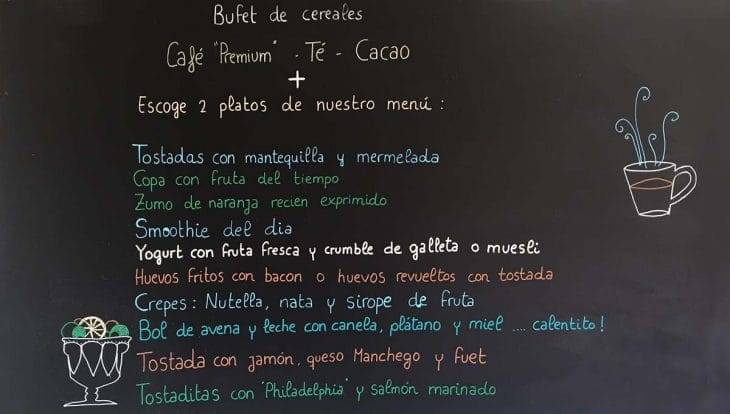 Bufet de cereales
Café "Premium" - Té - Cacao
+
Escoge 2 platos de nuestro menú :
Tostadas con mantequilla y mermelada
Copa con fruta del tiempo
Zumo de naranja recien exprimido
Smoothie del dia
Yogurt con fruta fresca y crumble de galleta o muesli
Huevos fritos con bacon o huevos revueltos con tostada
Crepes : Nutella, nata y sirope de fruta
Bol de avena y leche con canela, plátano y miel .... calentito !
Tostada con jamón, queso Manchego y fuet
Tostaditas con "Philadelphia" y salmón marinado